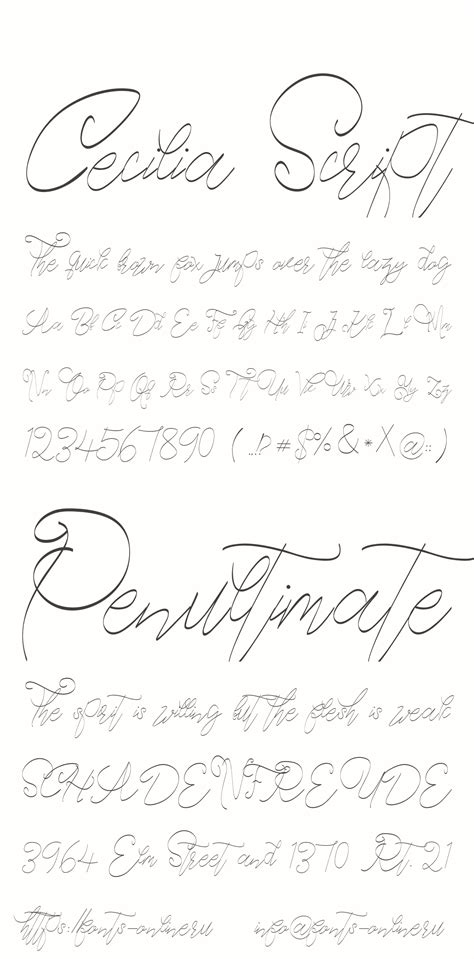 Cecilia Script
The quick brown fox jumps over the lazy dog
Aa Bb Cc Dd Ee Ff Gg Hh Ii Jj Kk Ll Mm
Nn Oo Pp Qq Rr Ss Tt Uu Vv Ww Xx Yy Zz
1234567890 (.,!?#$%&*X@:;)
Penultimate
The spirit is willing but the flesh is weak
SCHADENFREUDE
3964 Elm Street and 1370 Rt. 21
https://fonts-online.ru info@fonts-online.ru